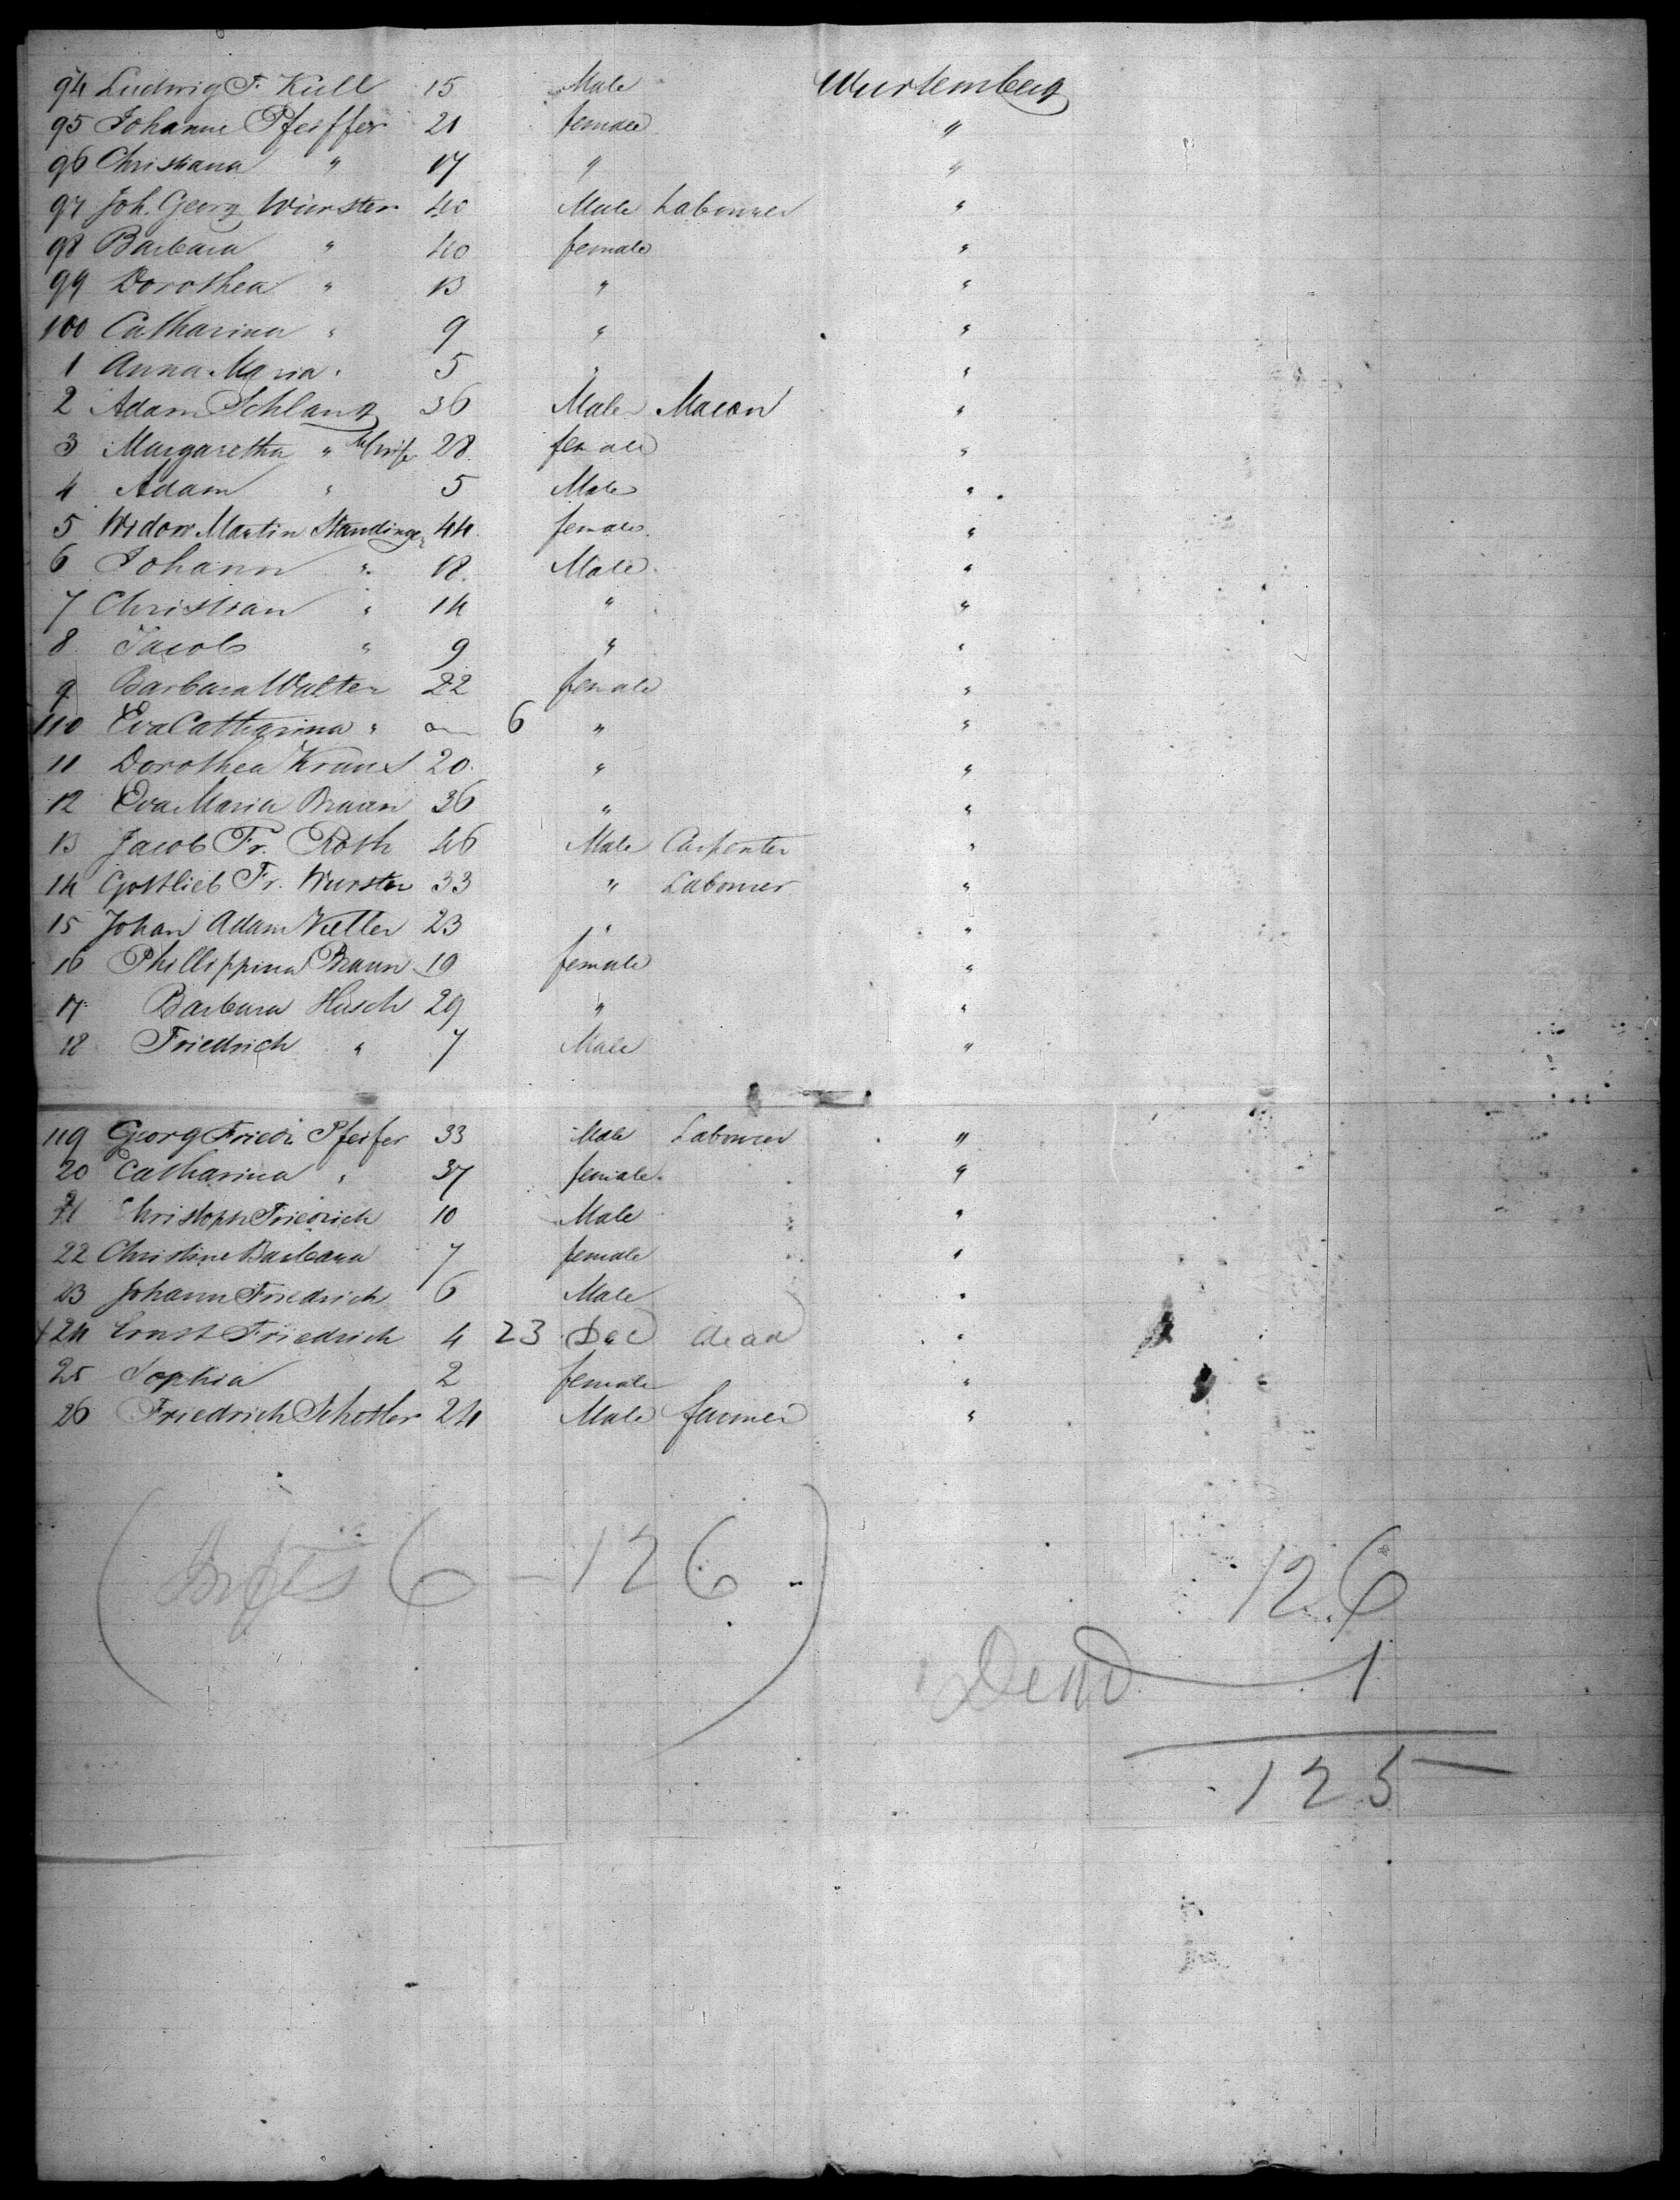 94 Ludwig F. Kull 15 Male Wurtemberg
95 Johanne Pfeiffer 21 female "
96 Christiana " 17 " "
97 Joh. Georg Wurster 40 Male Labourer "
98 Barbara " 40 female "
99 Dorothea " 13 " "
100 Catharina " 9 " "
1 Anna Maria " 5 " "
2 Adam Schlang 36 Male Macon "
3 Margaretha " wife 28 female "
4 Adam " 5 Male "
5 Widow Martin Standinger 44 female "
6 Johann " 18 Male "
7 Christian " 14 " "
8 Jacob " 9 " "
9 Barbara Walter 22 female "
110 Eva Catharina " 6 " "
11 Dorothea Kraus 20 " "
12 Eva Maria Braun 36 " "
13 Jacob Fr. Roth 46 Male Carpenter "
14 Gottlieb Fr. Wurster 33 " Labourer "
15 Johan Adam 23 " "
16 Phillippina Braun 19 female "
17 Barbara Husch 29 " "
18 Friedrich " 7 Male "
119 Georg Friedr Pfeifer 33 Male Labourer "
20 Catharina " 37 female "
21 Christoph Friedrich 10 Male "
22 Christine Barbara 7 female "
23 Johann Friedrich 6 Male "
24 Ernst Friedrich 4 23 Dec dead "
25 Sophia 2 female "
26 Friedrich Schotler 24 Male farmer "
( 6 - 126 )
126
Dead 1
125